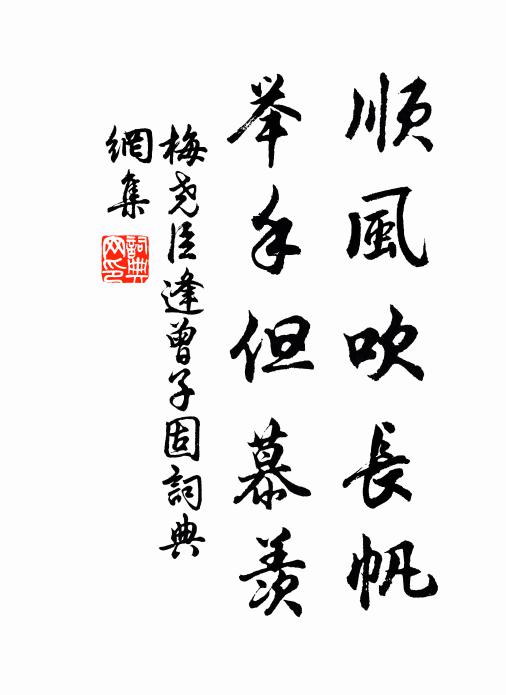 順風吹長帆
举手但慕羡
梅尧臣逢曾子固詞典
網集
詞典
网印